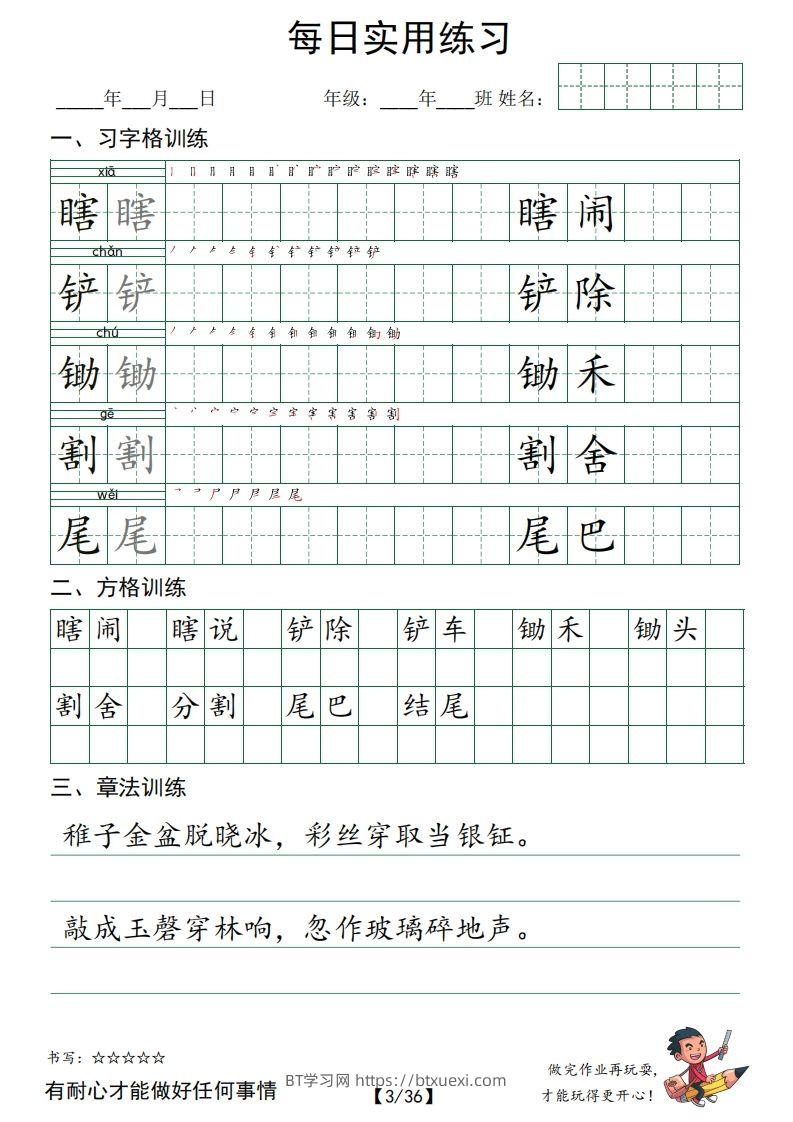 每日实用练习
_____年___月___日 年级：____年____班 姓名：
一、习字格训练
xiā
瞎 瞎 瞎 闹
chǎn
铲 铲 铲 除
chú
锄 锄 锄 禾
gē
割 割 割 舍
wěi
尾 尾 尾 巴
二、方格训练
瞎闹 瞎说 铲除 铲车 锄禾 锄头
割舍 分割 尾巴 结尾
三、章法训练
稚子金盆脱晓冰，彩丝穿取当银钲。
敲成玉磬穿林响，忽作玻璃碎地声。
书写：☆☆☆☆☆
有耐心才能做好任何事情
BT学习网 https://btxuexi.com
【3/36】
做完作业再玩耍，
才能玩得更开心！